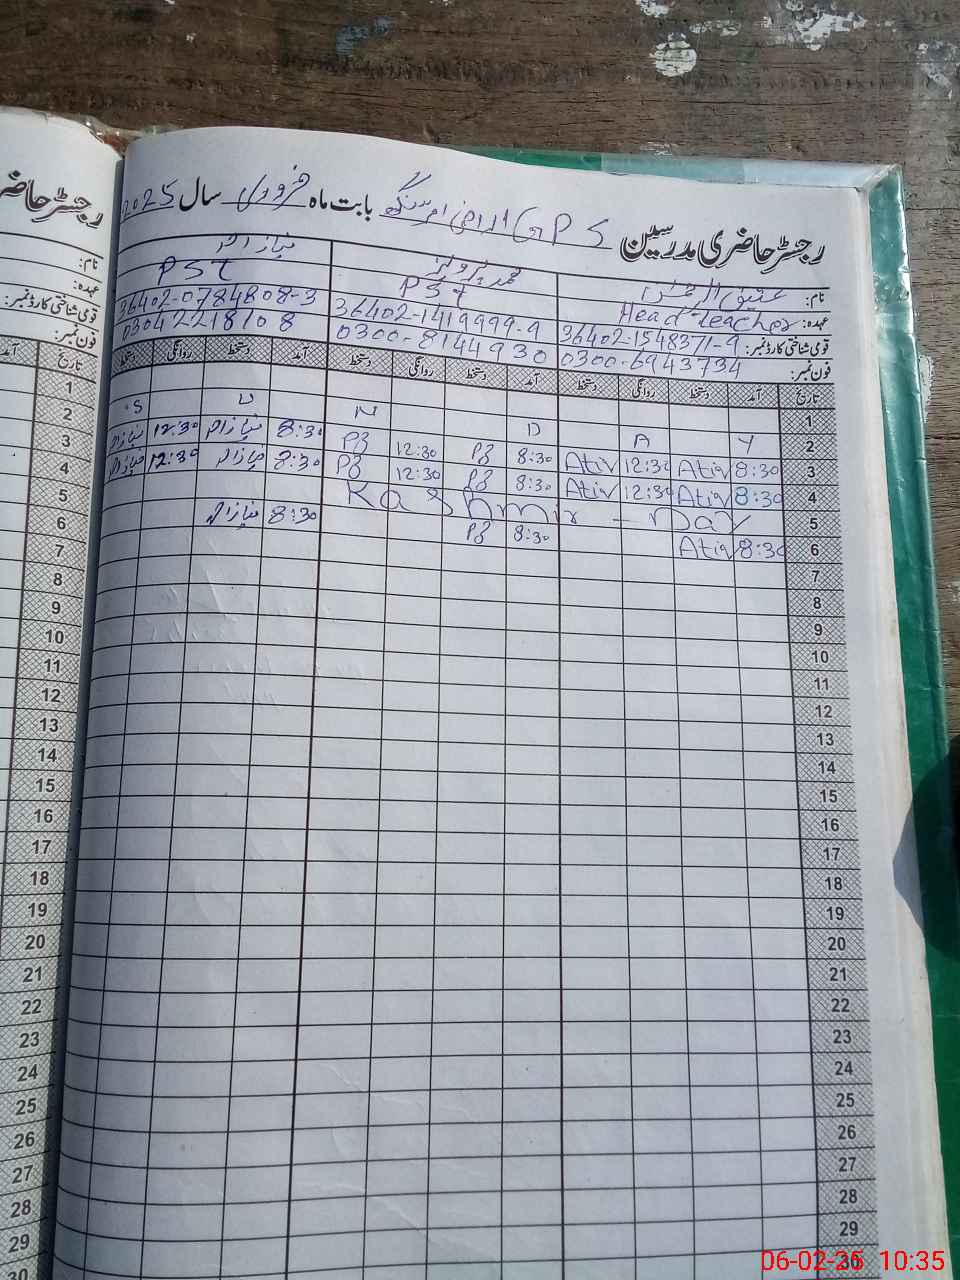 رجسٹر حاضری مدرسین G P S اراضی ام سنگھ بابت ماہ فروری سال 2025
نام: عتیق الرحمن محمد پرویز نیاز احمد
عہدہ: Head teacher PST PST
قومی شناختی کارڈ نمبر: 36402-1548371-9 36402-1419999-9 36402-0784808-3
فون نمبر: 0300-6943734 0300-8144930 03042218108
تاریخ آمد دستخط روانگی دستخط آمد دستخط روانگی دستخط آمد دستخط روانگی دستخط
1
2 S U N D A Y
3 8:30 Atiq 12:30 Atiq 8:30 PZ 12:30 PZ 8:30 نیاز احمد 12:30 نیاز احمد
4 8:30 Atiq 12:30 Atiq 8:30 PZ 12:30 PZ 8:30 نیاز احمد 12:30 نیاز احمد
5 Kashmir - Day
6 8:30 Atiq 8:30 PZ 8:30 نیاز احمد
7
8
9
10
11
12
13
14
15
16
17
18
19
20
21
22
23
24
25
26
27
28
29
30
رجسٹر حاضر
نام:
عہدہ:
قومی شناختی کارڈ نمبر:
فون نمبر:
تاریخ آمد
1
2
3
4
5
6
7
8
9
10
11
12
13
14
15
16
17
18
19
20
21
22
23
24
25
26
27
28
29
30
06-02-25 10:35